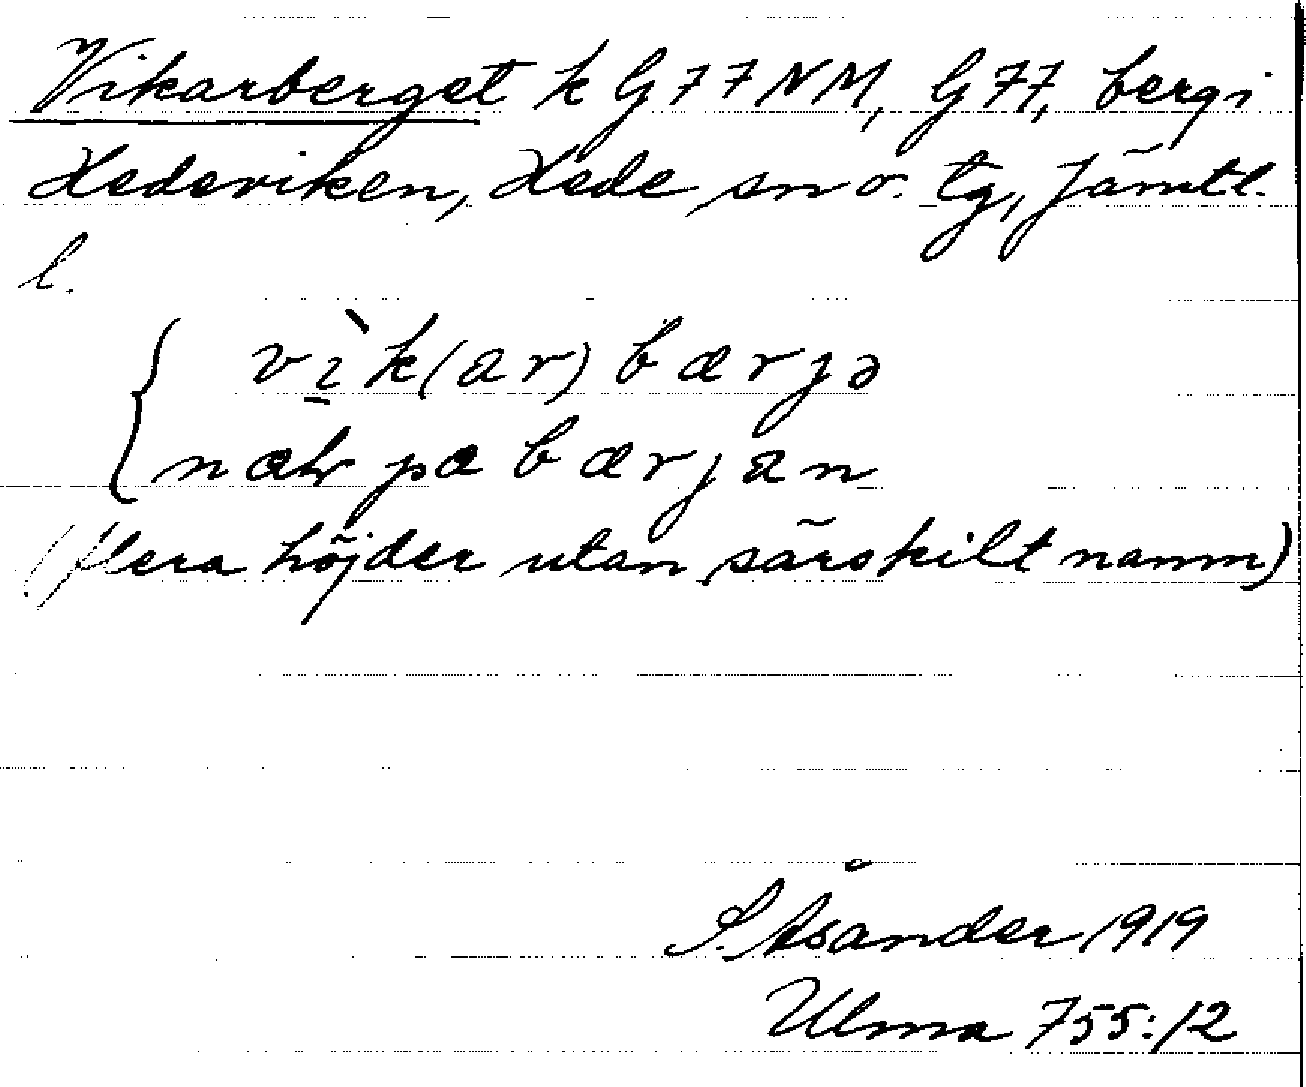 Vikarberget k G77NM, G77, berg i
Hedeviken, Hede sn o. tg, Jämtl.
l.
vìk(ar)bærjə
næþ pa bærjan
(flera höjder utan särskilt namn)
S. Åsander 1919
Ulma 755:12